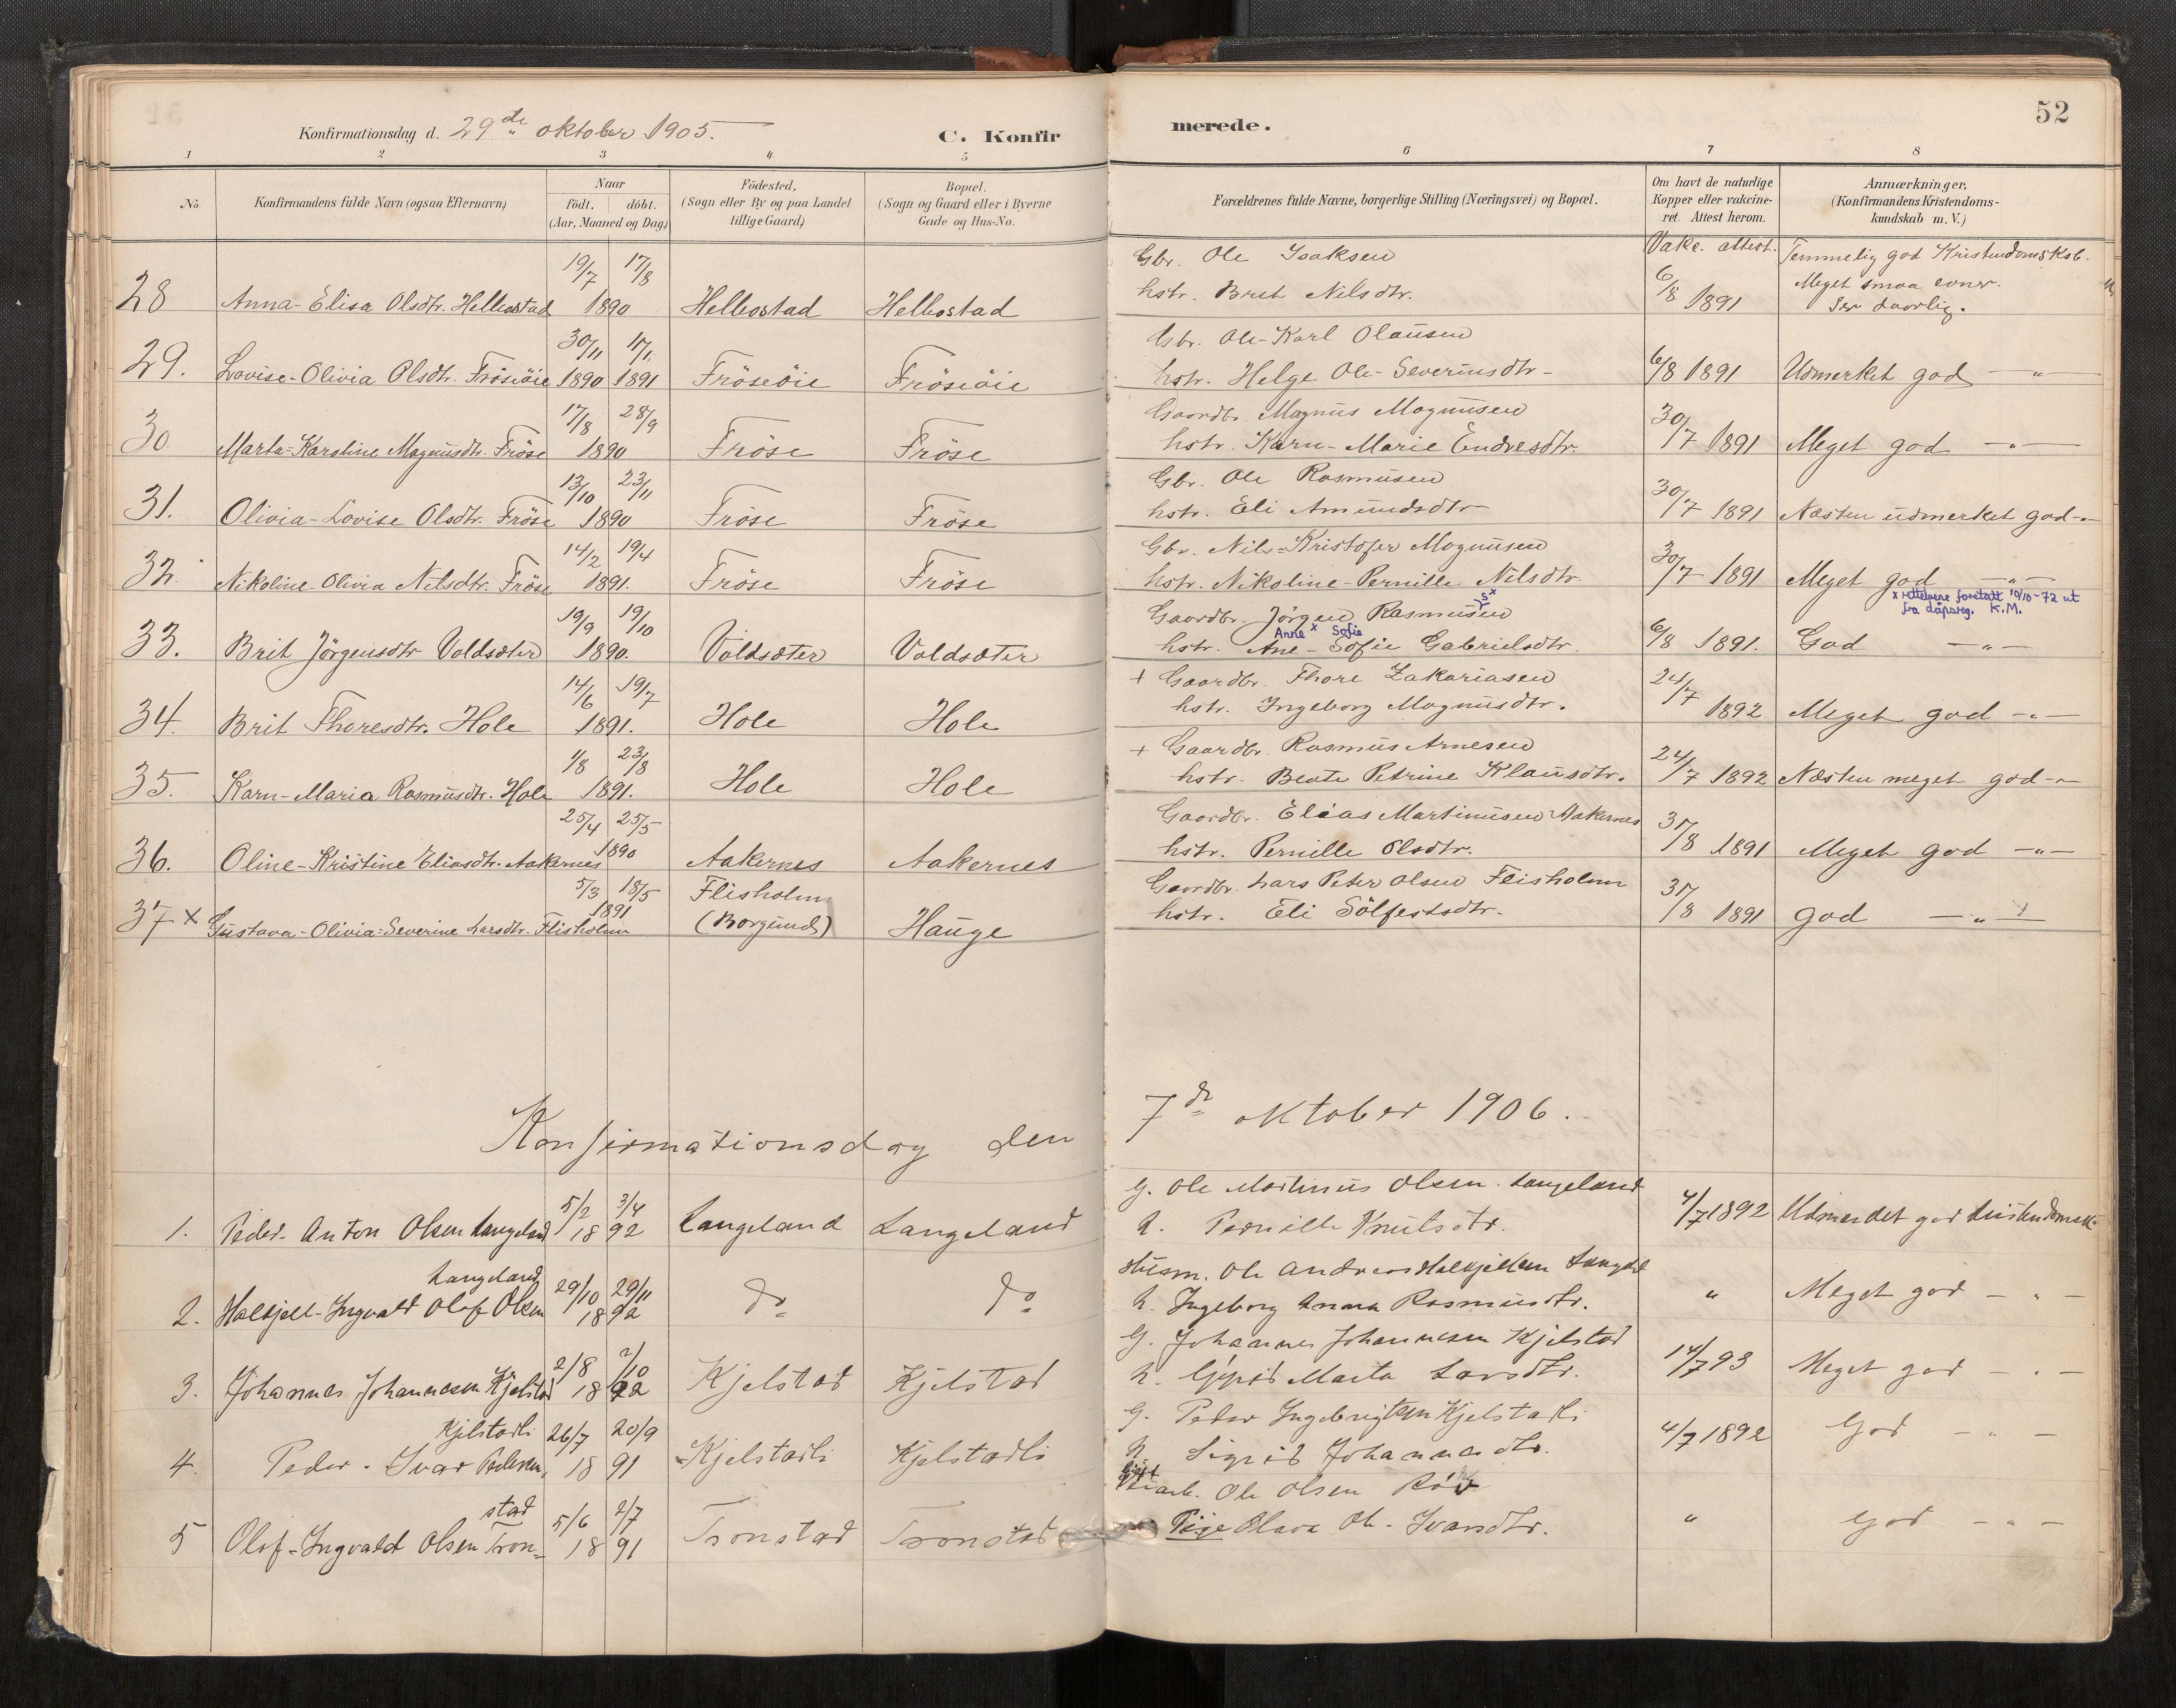 52
Konfirmationsdag d. 29de oktober 1905.
C. Konfirmerede.
1 2 3 4 5 6 7 8
No.
Konfirmandens fulde Navn (ogsaa Efternavn)
Naar
födt. döbt.
(Aar, Maaned og Dag)
Födested,
(Sogn eller By og paa Landet
tillige Gaard)
Bopæl.
(Sogn og Gaard eller i Byerne
Gade og Hus-No.
Forældrenes fulde Navne, borgerlige Stilling (Næringsvei) og Bopæl.
Om havt de naturlige
Kopper eller vakcine-
ret. Attest herom.
Anmærkninger,
(Konfirmandens Kristendoms-
kundskab m. V.)
19/7 17/8 Gbr. Ole Isaksen Vakc. attest. Temmelig god Kristendomsksb.
28 Anna-Elisa Olsdtr. Hellebostad 1890 Hellebostad Hellebostad hstr. Brit Nilsdtr. 6/8 1891 Meget smaa evner.
Ser daarlig.
30/11 11/1 Gbr. Ole-Karl Olausen
29. Lovise-Olivia Olsdtr. Fröseöie 1890 1891 Fröseöie Fröseöie hstr. Helge Ole-Severinsdtr- 6/8 1891 Udmerket god - " -
17/8 28/9 Gaardbr. Magnus Magnusen
30 Marta-Karoline Magnusdtr. Fröse 1890 Fröse Fröse hstr. Karn-Marie Endresdtr. 30/7 1891 Meget god - " -
13/10 23/11 Gbr. Ole Rasmusen
31. Olivia-Lovise Olsdtr. Fröse 1890 Fröse Fröse hstr. Eli Amundsdtr 30/7 1891 Næsten udmerket god - " -
14/2 19/4 Gbr. Nils-Kristofer Magnusen
32. Nikoline-Olivia Nilsdtr. Fröse 1891. Fröse Fröse hstr. Nikoline-Pernille Nilsdtr. 30/7 1891 Meget god - " -
x rettelsene foretatt 10/10-72 ut
fra dåpsreg. K.M.
19/9 19/10 Gaardbr. Jørgen Rasmusen s x
Anne x Sofie
33. Brit Jörgensdtr Voldsæter 1890. Voldsæter Voldsæter hstr. Ane-Sofie Gabrielsdtr. 6/8 1891. God - " -
14/6 19/7 + Gaardbr. Thore Zakariasen
34. Brit Thoresdtr. Hole 1891. Hole Hole hstr. Ingeborg Magnusdtr. 24/7 1892 Meget god - " -
1/8 23/8 + Gaardbr. Rasmus Arnesen
35. Karn-Maria Rasmusdtr. Hole 1891. Hole Hole hstr. Beate Petrine Klausdtr. 24/7 1892 Næsten meget god - " -
25/4 25/5 Gaardbr. Elias Martinusen Aakernes
36. Oline-Kristine Eliasdtr. Aakernes 1890 Aakernes Aakernes hstr. Pernille Olsdtr. 31/8 1891 Meget god - " -
5/3 18/5 Flisholm Gaardbr. Lars Peter Olsen Flisholm
37 x Gustava-Olivia-Severine Larsdtr. Flisholm 1891 (Borgund) Hauge hstr. Eli Sölfestsdtr. 31/8 1891 god - " -
Konfirmationsdag den 7de oktober 1906.
5/2 3/4 G. Ole Martinus Olsen Langeland
1. Peder-Anton Olsen Langeland 1892 Langeland Langeland h. Pernille Knutsdtr. 4/7 1892 Udmerket god kristendomsk.
Langeland 29/10 29/11 Husm. Ole Andreas Halkjelsen
2. Halkjell-Ingvald Olaf Olsen 1892 do do h. Ingeborg Anna Rasmusdtr. " Meget god - " -
2/8 2/10 G. Johannes Johannesen Kjelstad
3. Johannes Johannesen Kjelstad 1892 Kjelstad Kjelstad h. Marta Larsdtr. 14/7 93 Meget god - " -
Kjelstadli 26/7 20/9 G. Peder Ingebrigtsen Kjelstadli
4. Peder-Ivar Pedersen 1891 Kjelstadli Kjelstadli h. Sigrid Johannesdtr. 4/7 1892 God - " -
stad 5/6 2/7 Ole Olsen
5 Olaf-Ingvald Olsen Tron- 1891 Tronstad Tronstad Pige Olava Ol-Ivarsdtr. " God - " -